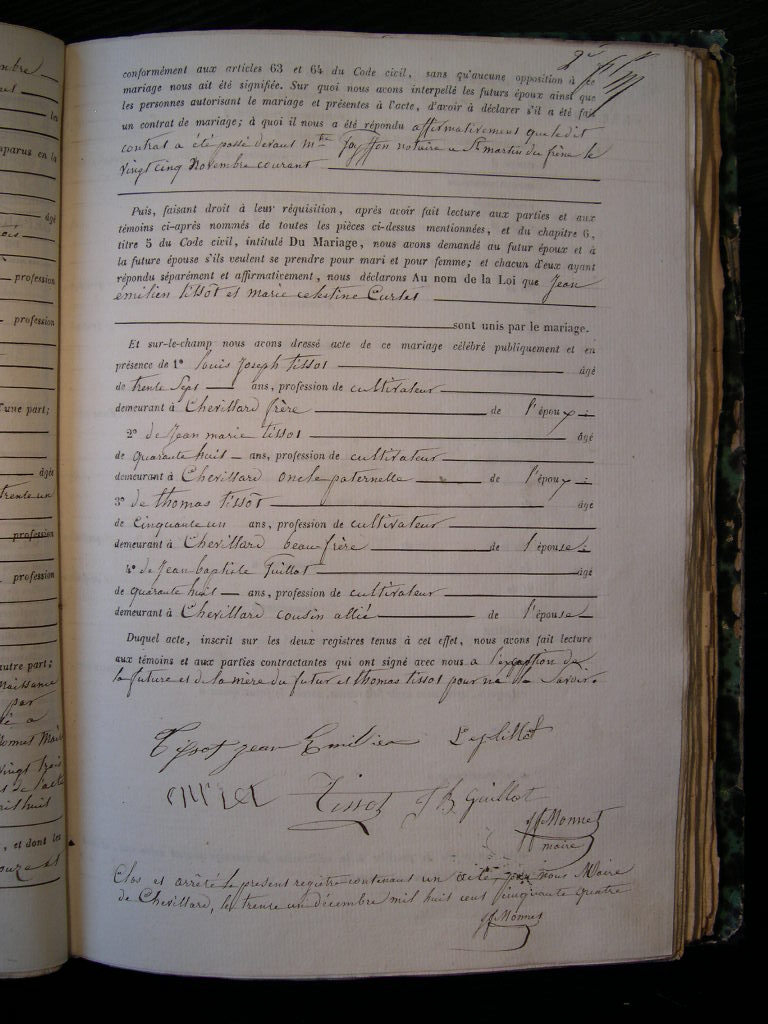 conformément aux articles 63 et 64 du Code civil, sans qu'aucune opposition à ce
mariage nous ait été signifiée. Sur quoi nous avons interpellé les futurs époux ainsi que
les personnes autorisant le mariage et présentes à l'acte, d'avoir à déclarer s'il a été fait
un contrat de mariage; à quoi il nous a été répondu affirmativement que ledit
contrat a été passé devant notaire a St martin du frêne le
Vingt cinq Novembre courant
Puis, faisant droit à leur réquisition, après avoir fait lecture aux parties et aux
témoins ci-après nommés de toutes les pièces ci-dessus mentionnées, et du chapitre 6,
titre 5 du Code civil, intitulé Du Mariage, nous avons demandé au futur époux et à
la future épouse s'ils veulent se prendre pour mari et pour femme; et chacun d'eux ayant
répondu séparément et affirmativement, nous déclarons Au nom de la Loi que Jean
émilien tissot et marie celestine
sont unis par le mariage.
Et sur-le-champ nous avons dressé acte de ce mariage célébré publiquement et en
présence de 1° louis Joseph tissot âgé
de trente Sept ans, profession de cultivateur
demeurant à Chevillard frère de l'époux
2° de Jean marie tissot âgé
de quarante huit ans, profession de cultivateur
demeurant à Chevillard oncle paternelle de l'époux
3° de thomas tissot âgé
de Cinquante un ans, profession de cultivateur
demeurant à Chevillard beau frère de l'épouse
4° de Jean baptiste Guillot âgé
de quarante huit ans, profession de cultivateur
demeurant à Chevillard cousin allié de l'épouse
Duquel acte, inscrit sur les deux registres tenus à cet effet, nous avons fait lecture
aux témoins et aux parties contractantes qui ont signé avec nous a l'exception de
la future et de la mère du futur et thomas tissot pour ne le Savoir.
Tissot jean Emilien
Tissot J B Guillot
Monnet
maire
Clos et arrêté le present registre contenant un acte par nous Maire
de Chevillard, le trente un décembre mil huit cent cinquante quatre
Monnet